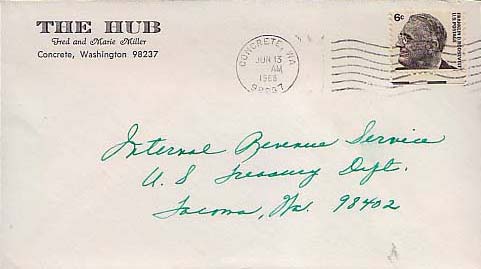 THE HUB
Fred and Marie Miller
Concrete, Washington 98237
CONCRETE, WA
JUN 13
AM
1968
98237
6¢
FRANKLIN D. ROOSEVELT
U.S. POSTAGE
Internal Revenue Service
U.S Treasury Dept.
Tacoma, Wa. 98402